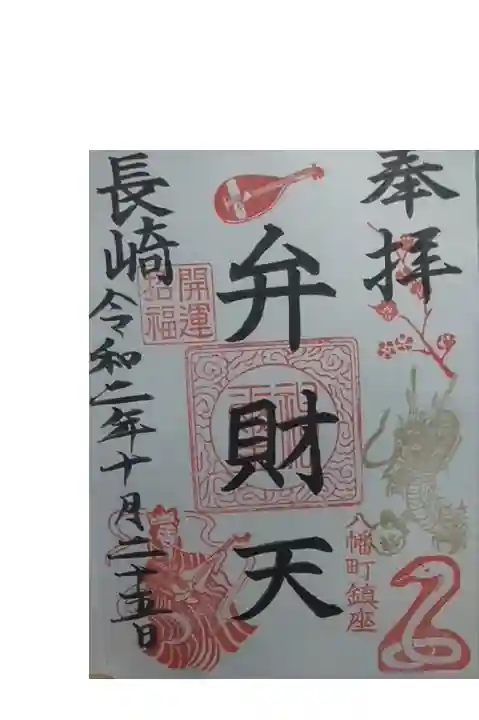 奉拝
八幡町鎮座
弁財天
開運
招福
長崎
令和二年十月二十五日